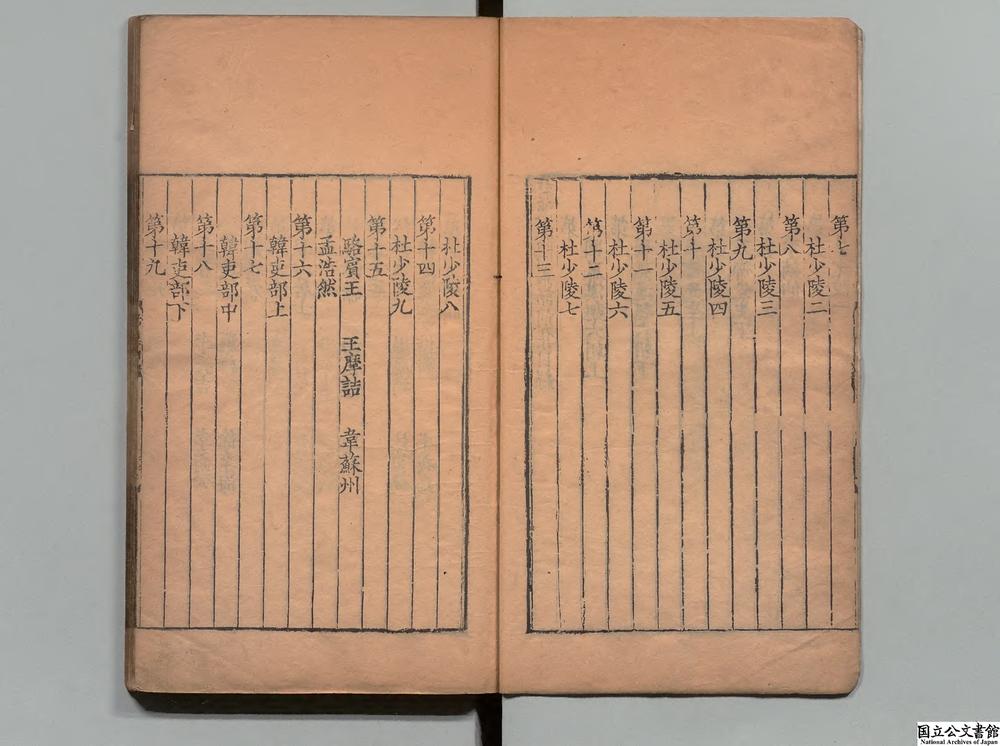 第七
杜少陵二
第八
杜少陵三
第九
杜少陵四
第十
杜少陵五
第十一
杜少陵六
第十二
杜少陵七
第十三
杜少陵八
第十四
杜少陵九
第十五
駱賓王 王摩詰 韋蘇州
孟浩然
第十六
韓吏部上
第十七
韓吏部中
第十八
韓吏部下
第十九
国立公文書館
National Archives of Japan